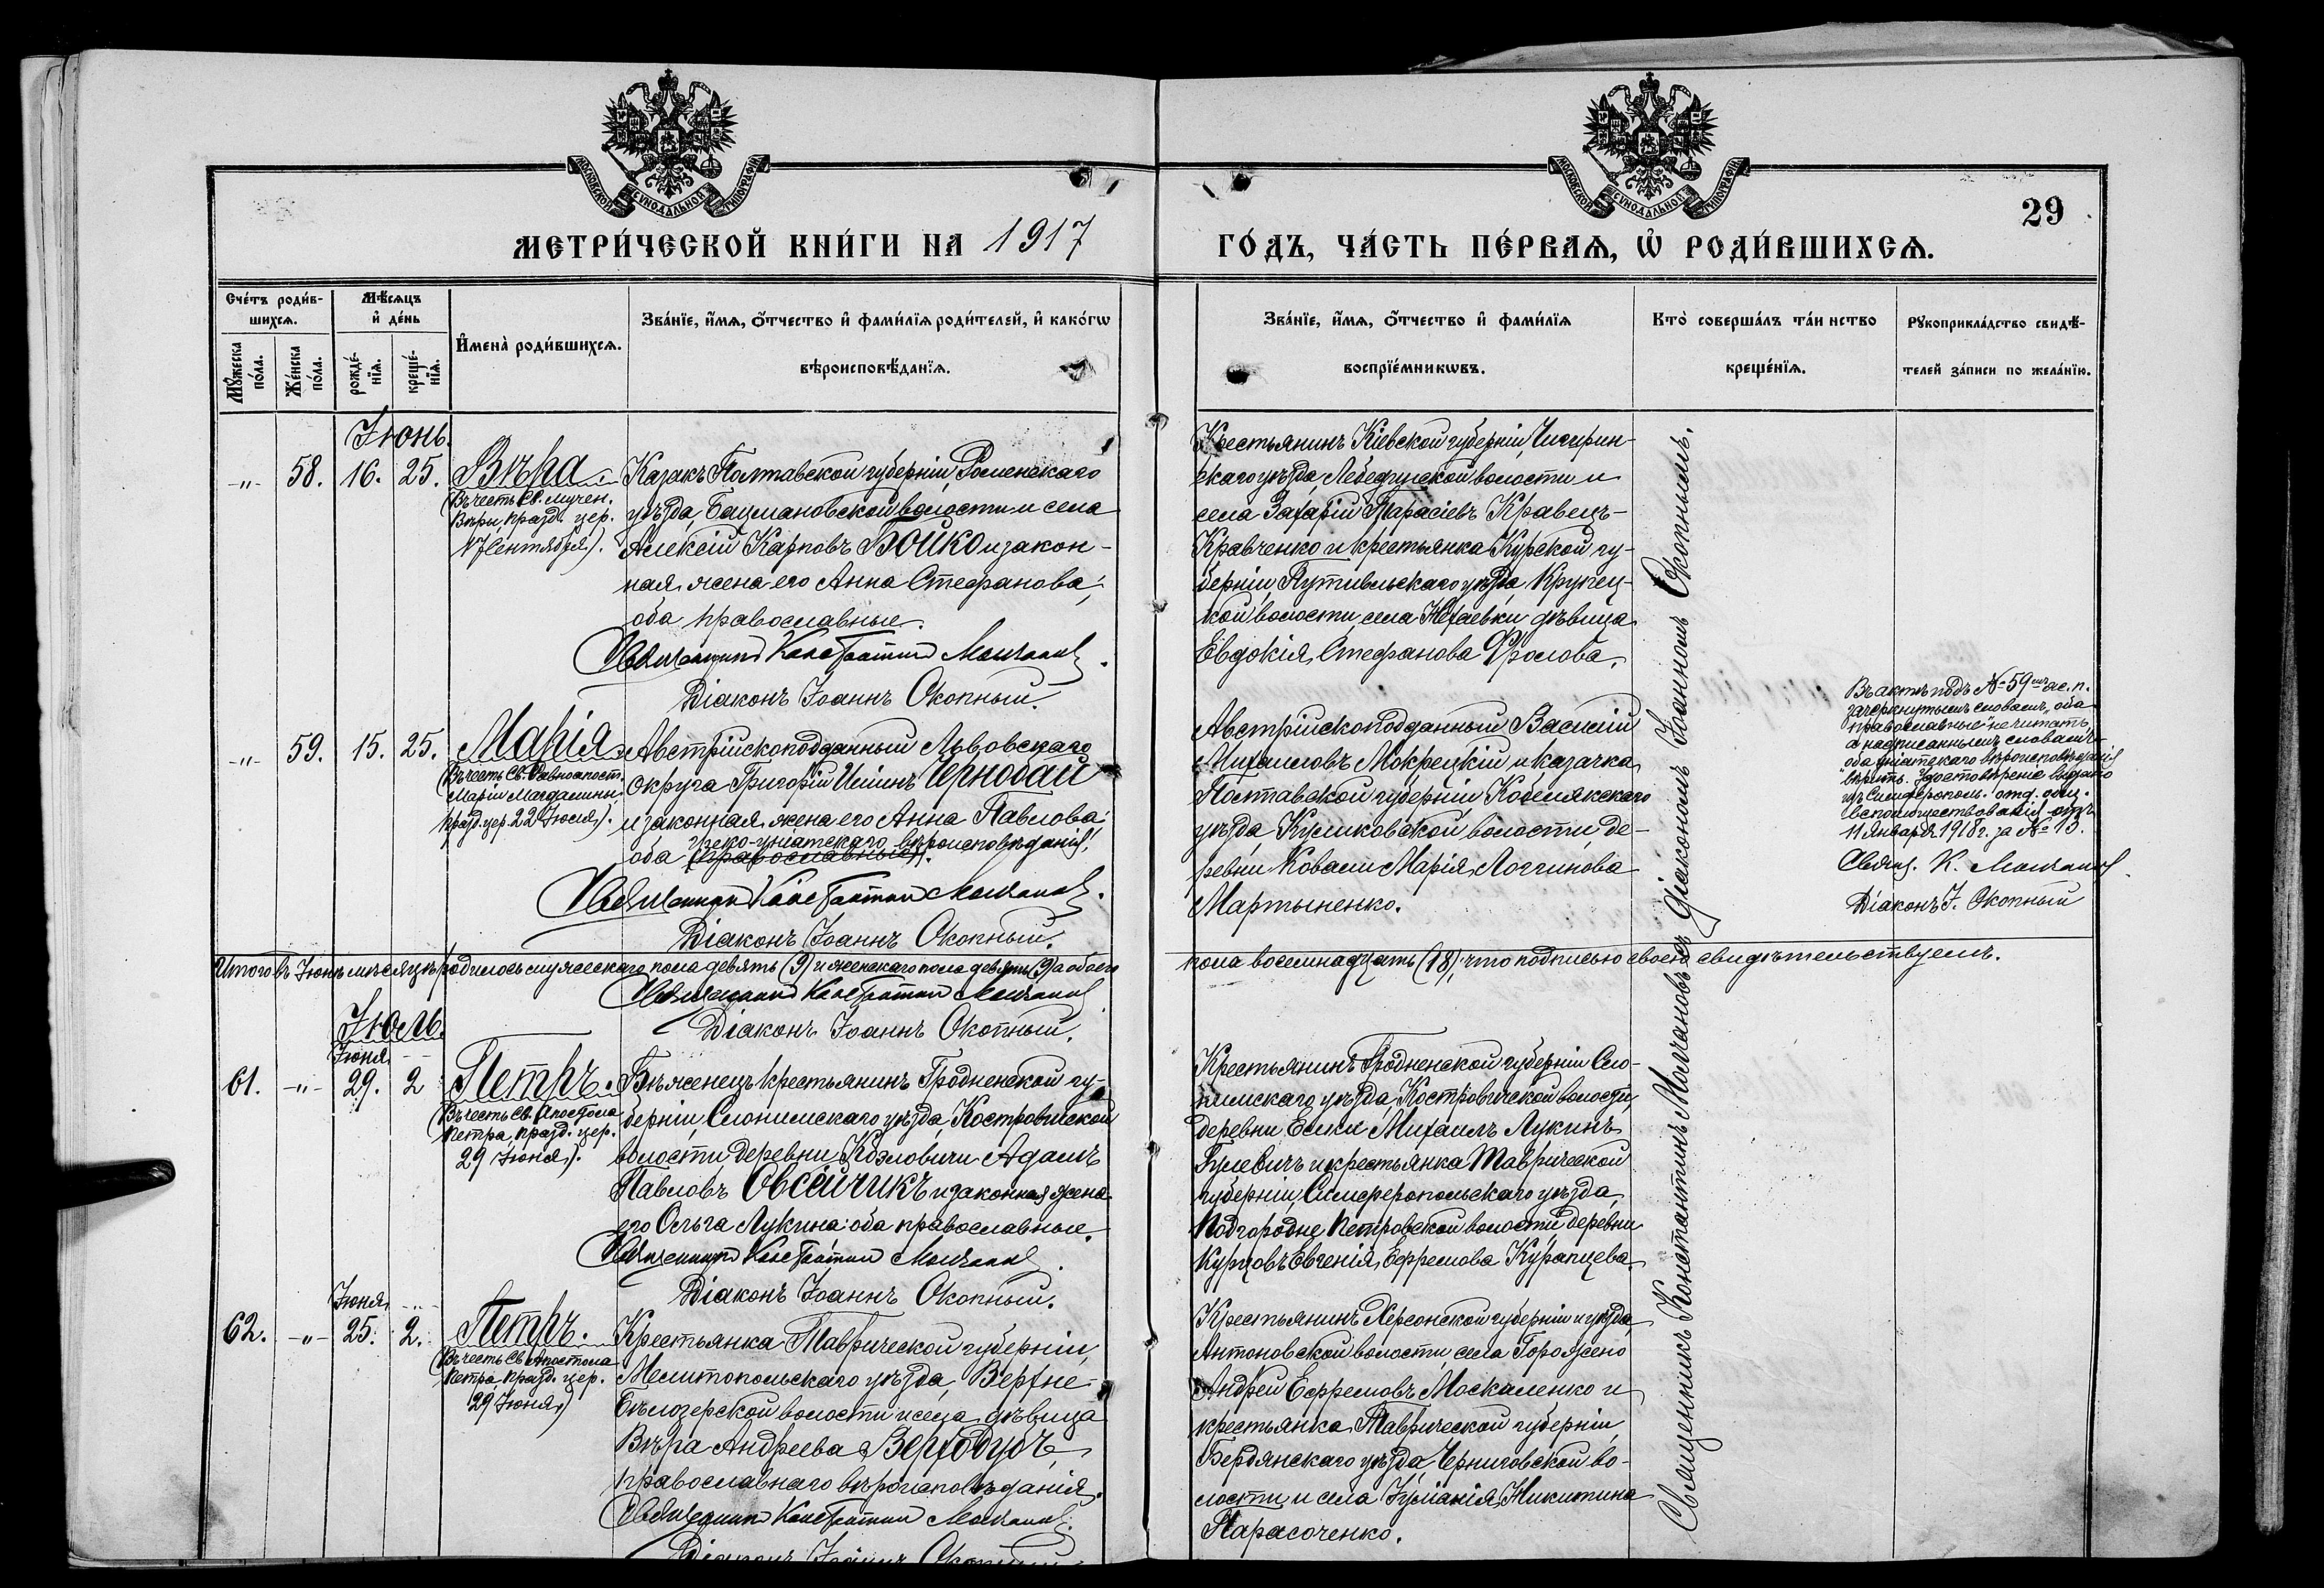 МОСКОВСКОЙ СѴНОДАЛЬНОЙ ТИПОГРАФІИ
МОСКОВСКОЙ СѴНОДАЛЬНОЙ ТИПОГРАФІИ
29
МЕТРИ́ЧЕСКОЙ КНИ́ГИ НА 1917
ГО́ДЪ, ЧА́СТЬ ПЕ́РВАѦ, Ѡ҆ РОДИ́ВШИХСѦ.
Сче́тъ роди́в-
шихсѧ.
Мѣ́сѧцъ
и҆ де́нь
И҆мена̀ роди́вшихсѧ.
Зва́нїе, и҆́мѧ, ѻ҆́тчество и҆ фами́лїѧ роди́телей, и҆ како́гѡ
вѣроисповѣ́данїѧ.
Мꙋ́жеска
по́ла.
Же́нска
по́ла.
рожде́-
нїѧ.
креще́-
нїѧ.
Зва́нїе, и҆́мѧ, ѻ҆́тчество и҆ фами́лїѧ
воспрїе́мникѡвъ.
Кто̀ соверша́лъ та́инство
креще́нїѧ.
Рꙋкоприкла́дство свидѣ́-
телей за́писи по жела́нїю.
Іюнь.
-"- 58. 16. 25. Вѣра.
(Въ честь Св. мучен.
Вѣры, празд. цер.
17 Сентября).
Казакъ Полтавской губерніи, Роменскаго
уѣзда, Бацмановской волости и села
Алексій Карповъ Бойко и закон-
ная жена его Анна Стефанова;
оба православные.
Священникъ Константинъ Молчановъ.
Діаконъ Іоаннъ Окопный.
Крестьянинъ Кіевской губерніи, Чигирин-
скаго уѣзда, Лебединской волости и
села Захарій Тарасіевъ Кравецъ-
Кравченко и крестьянка Курской гу-
берніи, Путивльскаго уѣзда, Крупец-
кой волости, села Нехаевки, дѣвица
Евдокія Стефанова Фролова.
-"- 59. 15. 25. Марія.
(Въ честь Св. Равноапост.
Маріи Магдалины,
празд. цер. 22 Іюля).
Австрійскоподданный Львовскаго
округа Григорій Ильинъ Чернобай
и законная жена его Анна Павлова:
греко-уніатскаго вѣроисповѣданія!
оба (православные).
Священникъ Константинъ Молчановъ.
Діаконъ Іоаннъ Окопный.
Австрійскоподданный Василій
Михаиловъ Мокрецкій и казачка
Полтавской губерніи Кобелякскаго
уѣзда, Куликовской волости, де-
ревни Ковали Марія Логгинова
Мартыненко.
Въ актѣ подъ № 59 же. п.
зачеркнутымъ словамъ „оба
православные" не читать,
а надписаннымъ словамъ
оба уніатскаго вѣроисповѣданія
вѣрить. Удостовѣреніе выдано
изъ Симферополь. отд. общ.
вспомоществованія отъ
11 Января 1918 г. за № 13.
Свящ. К. Молчановъ
Діаконъ І. Окопный
Итого въ Іюнѣ мѣсяцѣ родилось мужескаго пола девять (9) и женскаго пола девять (9) а обоего
пола восемнадцать (18); что подписью своею свидѣтельствуемъ.
Священникъ Константинъ Молчановъ
Діаконъ Іоаннъ Окопный.
Іюль.
Іюня
61. -"- 29. 2 Петръ.
(Въ честь Св. Апостола
Петра, празд. цер.
29 Іюня).
Бѣженецъ крестьянинъ Гродненской гу-
берніи, Слонимскаго уѣзда, Костровичской
волости, деревни Козловичи Адамъ
Павловъ Овсейчикъ и законная жена
его Ольга Лукина: оба православные.
Священникъ Константинъ Молчановъ.
Діаконъ Іоаннъ Окопный.
Крестьянинъ Гродненской губерніи Сло-
нимскаго уѣзда, Костровичской волости,
деревни Елки Михаилъ Лукинъ
Гулевичъ и крестьянка Таврической
губерніи, Симферопольскаго уѣзда
Подгородне Петровской волости, деревни
Курцовъ Евгенія Ефремова Курапцева.
Іюня -"-
62. -"- 25. 2. Петръ.
(Въ честь Св. Апостола
Петра, празд. цер.
29 Іюня)
Крестьянка Таврической губерніи,
Мелитопольскаго уѣзда, Верхне-
Бѣлозерской волости и села, дѣвица
Вѣра Андреева Верходубъ,
православнаго вѣроисповѣданія.
Священникъ Константинъ Молчановъ.
Діаконъ Іоаннъ Окопный
Крестьянинъ Херсонской губерніи и уѣзда,
Антоновской волости, села Горожено
Андрей Ефремовъ Москаленко и
крестьянка Таврической губерніи,
Бердянскаго уѣзда, Черниговской во-
лости, и села Іуліанія Никитина
Тарасоченко.
Священникъ Константинъ Молчановъ съ діакономъ Іоанномъ Окопнымъ.